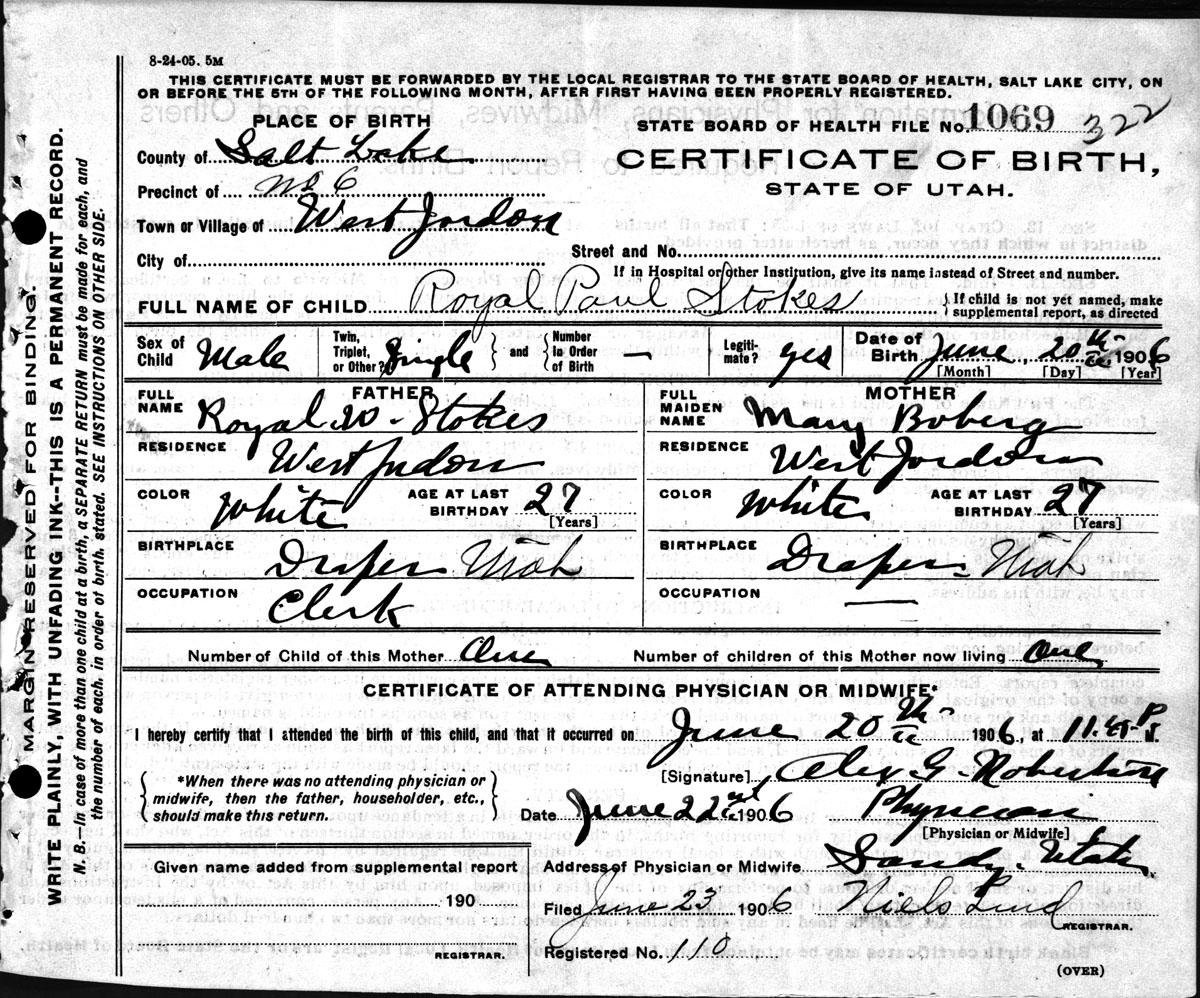 8-24-05. 5M
THIS CERTIFICATE MUST BE FORWARDED BY THE LOCAL REGISTRAR TO THE STATE BOARD OF HEALTH, SALT LAKE CITY, ON
OR BEFORE THE 5TH OF THE FOLLOWING MONTH, AFTER FIRST HAVING BEEN PROPERLY REGISTERED.
PLACE OF BIRTH
STATE BOARD OF HEALTH FILE No. 1069 322
County of Salt Lake
CERTIFICATE OF BIRTH,
STATE OF UTAH.
Precinct of No 6
Town or Village of West Jordon
City of
Street and No.
If in Hospital or other Institution, give its name instead of Street and number.
FULL NAME OF CHILD Royal Paul Stokes
} If child is not yet named, make
supplemental report, as directed
Sex of Child Male
Twin, Triplet, or Other? Single } and { Number in Order of Birth —
Legiti-mate? yes
Date of Birth June 20th 1906
[Month] [Day] [Year]
FATHER
FULL NAME Royal W. Stokes
RESIDENCE West Jordon
COLOR White AGE AT LAST BIRTHDAY 27
[Years]
BIRTHPLACE Draper Utah
OCCUPATION Clerk
MOTHER
FULL MAIDEN NAME Mary Boberg
RESIDENCE West Jordon
COLOR White AGE AT LAST BIRTHDAY 27
[Years]
BIRTHPLACE Draper Utah
OCCUPATION —
Number of Child of this Mother One Number of children of this Mother now living One
CERTIFICATE OF ATTENDING PHYSICIAN OR MIDWIFE*
I hereby certify that I attended the birth of this child, and that it occurred on June 20th 1906. at 11.45 P
{ *When there was no attending physician or
midwife, then the father, householder, etc.,
should make this return. }
[Signature] Alex G. Robertson
Date June 22 1906 Physician
[Physician or Midwife]
Given name added from supplemental report
190
REGISTRAR.
Address of Physician or Midwife Sandy. Utah
Filed June 23 1906 Niels Lind
REGISTRAR.
Registered No. 110
(OVER)
MARGIN RESERVED FOR BINDING.
WRITE PLAINLY, WITH UNFADING INK--THIS IS A PERMANENT RECORD.
N. B.--In case of more than one child at a birth, a SEPARATE RETURN must be made for each, and
the number of each, in order of birth, stated. SEE INSTRUCTIONS ON OTHER SIDE.